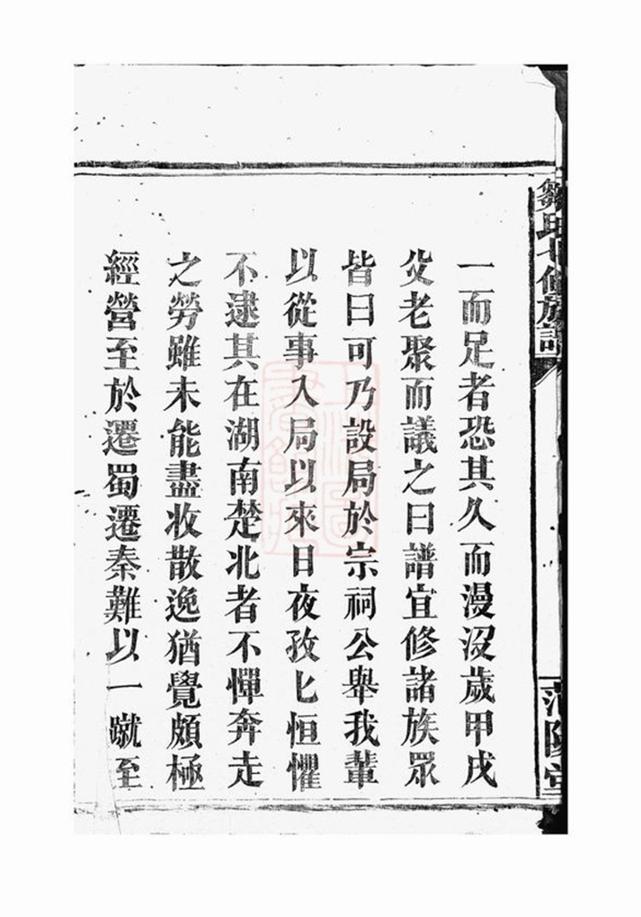 鄒氏七修族譜
范陽堂
一而足者恐其久而漫沒歲甲戌
父老聚而議之曰譜宜修諸族眾
皆曰可乃設局於宗祠公舉我輩
以從事入局以來日夜孜匕恒懼
不逮其在湖南楚北者不憚奔走
之勞雖未能盡收散逸猶覺頗極
經營至於遷蜀遷秦難以一蹴至